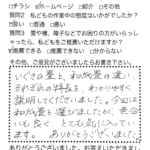 □チラシ ☑ホームページ □紹介 □その他
質問2 私どもの作業中の態度はいかがでしたか？
☑良い □普通 □悪い
質問3 畳や襖、障子などでお困りの方がいらっし
ゃったら、私どもをご推薦いただけますか？
☑推薦できる □推薦できない □わからない
その他、ご意見がございましたらお書き下さい。
いぐさの畳と、和紙畳の違い、
それぞれの特長を、わかりやすく
説明してくださいました。今回は
和紙畳を選びましたが、色合
いも良く、とても気に入ってい
ます。 ありがとうございました。
ありがとうございました。お答えいただきまし